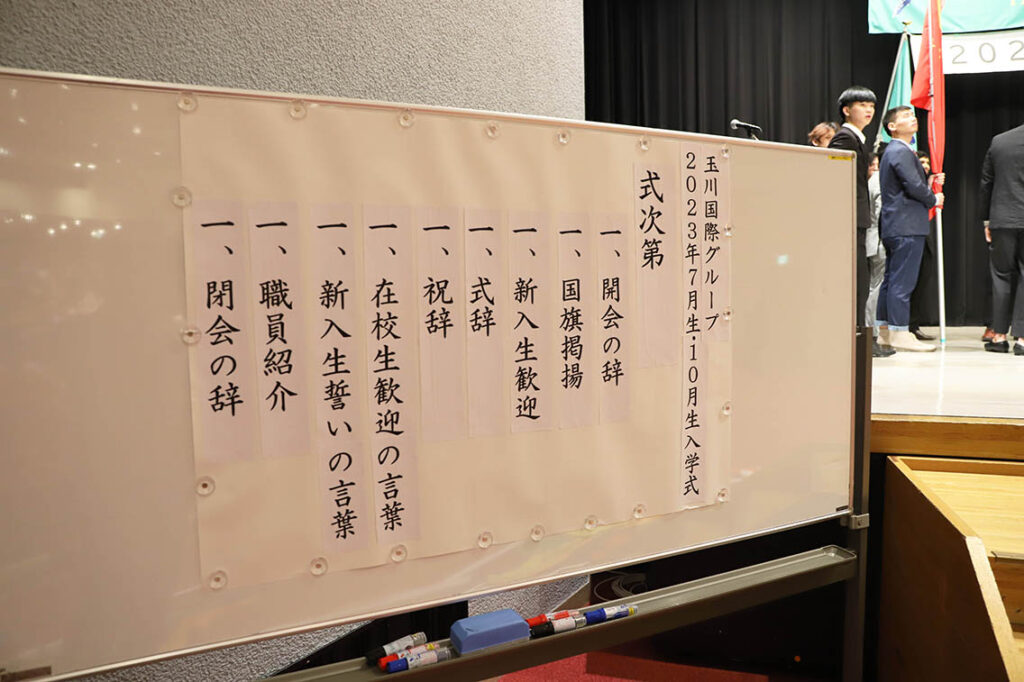 玉川国際グループ
2023年7月生・10月生入学式
式次第
一、開会の辞
一、国旗掲揚
一、新入生歓迎
一、式辞
一、祝辞
一、在校生歓迎の言葉
一、新入生誓いの言葉
一、職員紹介
一、閉会の辞
202